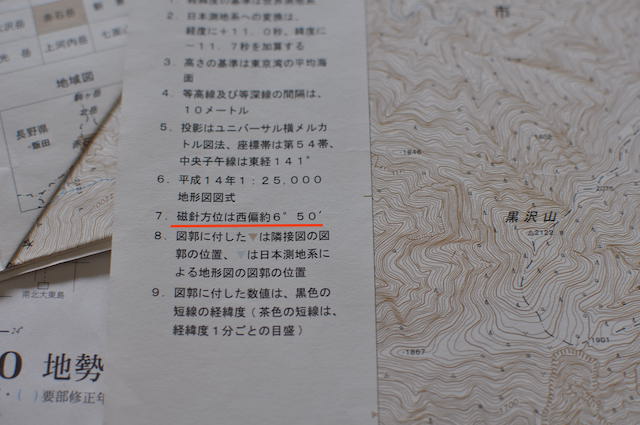 赤石岳
光 岳
上河内岳
地域図
長野県
飯田
南北大東島
24°
0 地勢
要部修正年
2. 日本測地系への変換は、
経度に+11.0秒、緯度に
-11.7秒を加算する
3. 高さの基準は東京湾の平均海
面
4. 等高線及び等深線の間隔は、
10メートル
5. 投影はユニバーサル横メルカ
トル図法、座標帯は第54帯、
中央子午線は東経141°
6. 平成14年1:25,000
地形図図式
7. 磁針方位は西偏約6°50′
8. 図郭に付した▼は隣接図の図
郭の位置、▼は日本測地系に
よる地形図の図郭の位置
9. 図郭に付した数値は、黒色の
短線の経緯度(茶色の短線は、
経緯度1分ごとの目盛)
市
1846
黒沢山
2122
1901
1867
1700